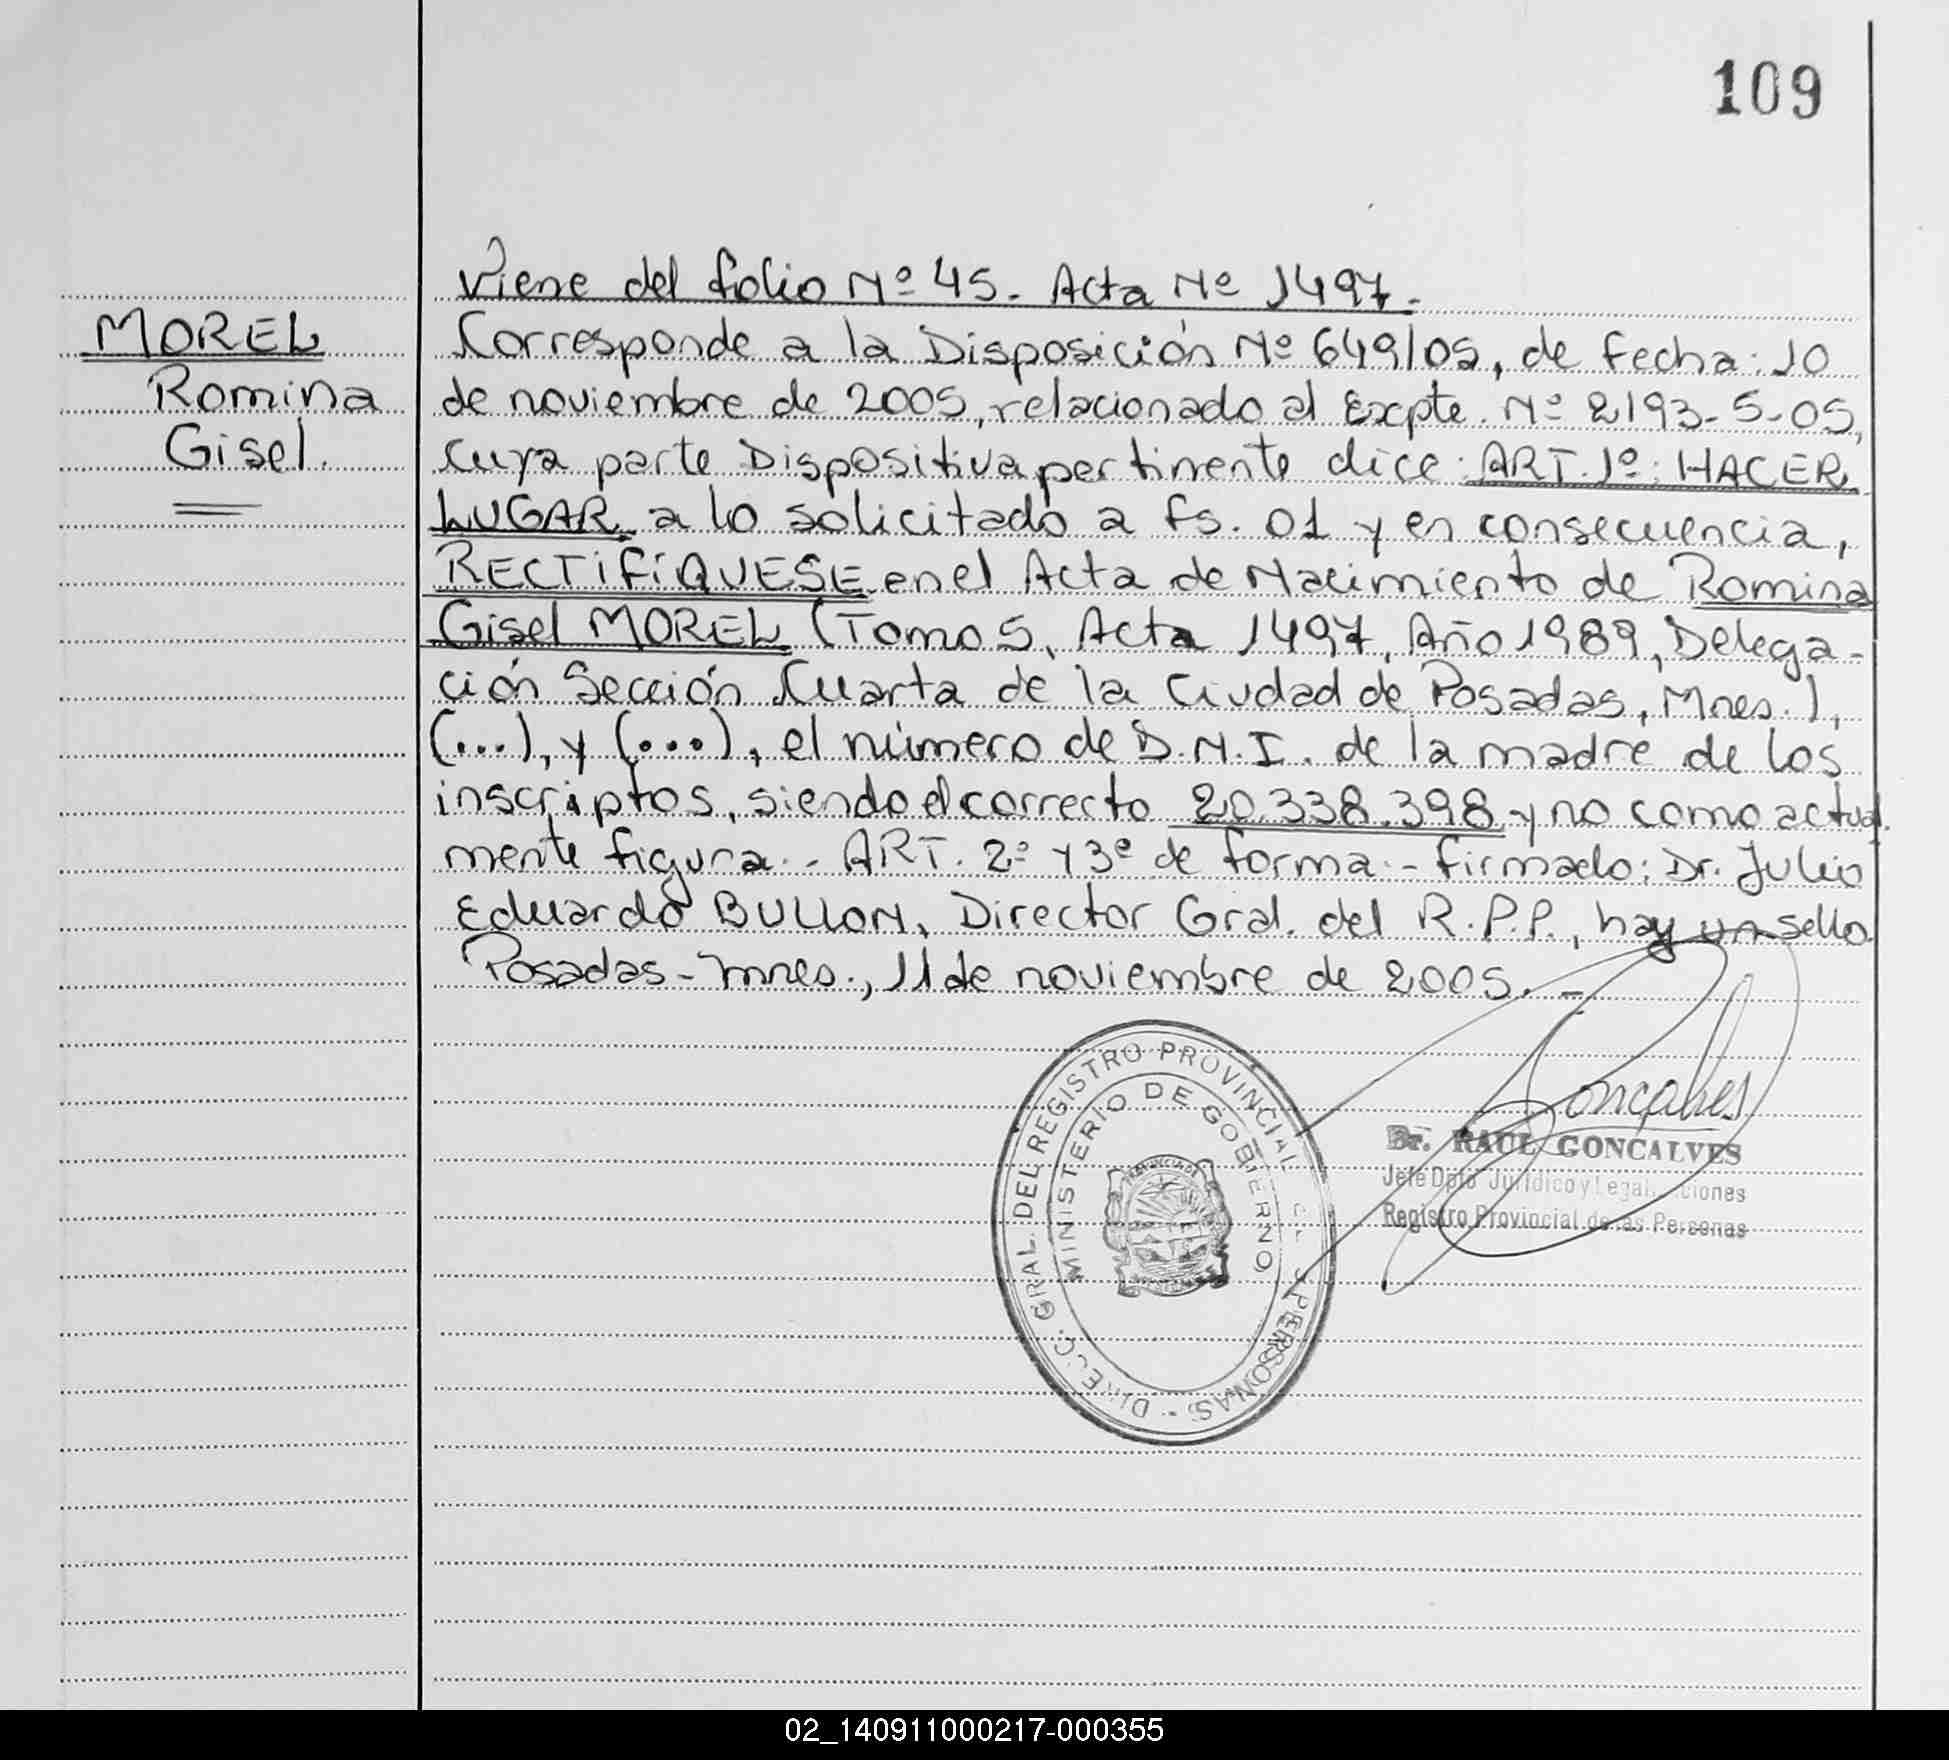 109
Viene del folio Nº 45. Acta Nº 1497.
MOREL
Romina
Gisel.
Corresponde a la Disposición Nº 649/05, de fecha: 10
de noviembre de 2005, relacionado al Expte. Nº 2193-5-05,
cuya parte Dispositiva pertinente dice: ART. 1º: HACER
LUGAR a lo solicitado a fs. 01 y en consecuencia,
RECTIFÍQUESE en el Acta de Nacimiento de Romina
Gisel MOREL (Tomo 5, Acta 1497, Año 1989, Delega-
ción Sección Cuarta de la Ciudad de Posadas, Mnes.),
(...), y (...), el número de D.N.I. de la madre de los
inscriptos, siendo el correcto 20.338.398 y no como actual
mente figura.- ART. 2º y 3º de forma.- Firmado: Dr. Julio
Eduardo BULLON, Director Gral. del R.P.P., hay un sello.
Posadas-Mnes., 11 de noviembre de 2005.-
DIRECC. GRAL. DEL REGISTRO PROVINCIAL PERSONAS -
MINISTERIO DE GOBIERNO
Goncalves
Dr. RAUL GONCALVES
Jefe Dpto Jurídico y
Registro Provincial de las Personas
02_140911000217-000355